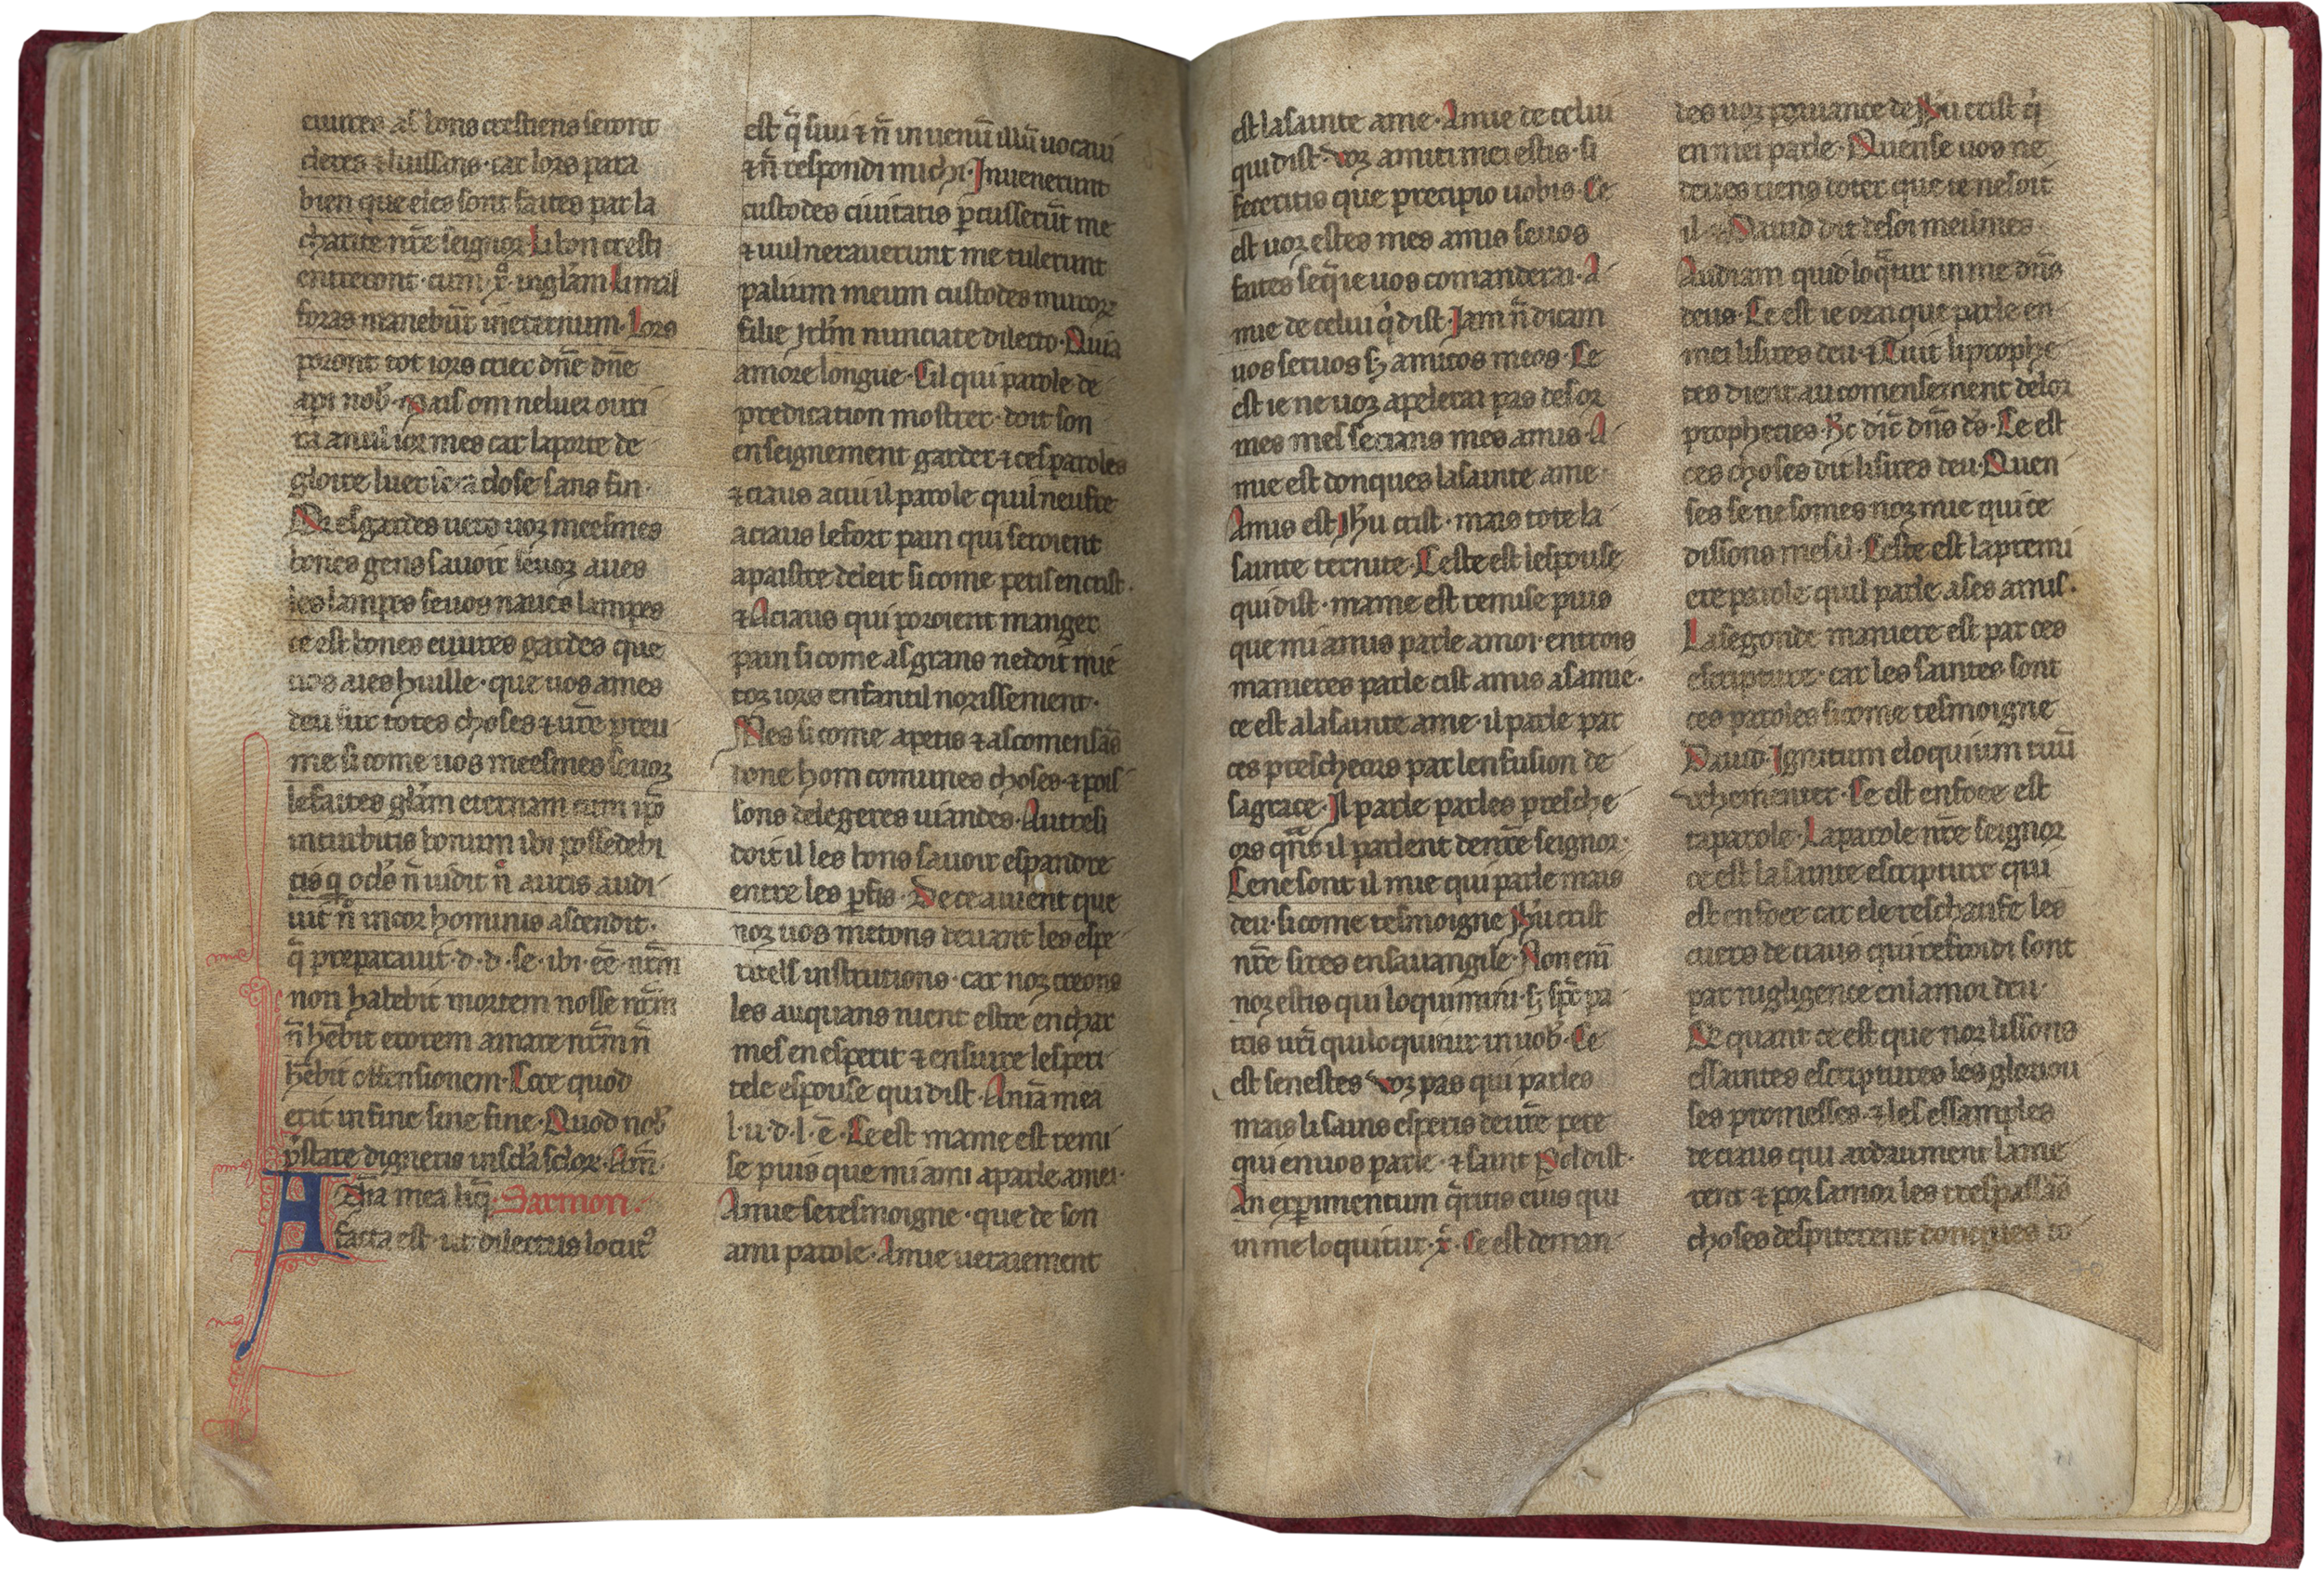 euures as bons crestiens seront
cleres ⁊ luissans · car lors para
bien que eles sont faites par la
charite nr̄e seignor · Li bon cresti
enterront · cum · x̄ · in gl̄am li mal
foras manebūt in eternum · Lors
poront tot iors crier dn̄e dn̄e
api nob̄ · mais om ne luer ouri
ra a nul ior mes car la porte de
gloire luer sera close sans fin ·
Or esgardes uers uoz meesmes
bones gens sauoir se uoz aues
les lampes se uos naues lampes
ce est bones euures gardes que
uos aies huille · que uos ames
deu sur totes choses ⁊ ur̄e preu
me si come uos meesmes se uoz
le faites gl̄am eternam cum ip̄o
intrabitis bonum ibi possedebi
tis q̄ ocl̄s n̄ uidit n̄ auris audi
uit n̄ in cor hominis ascendit ·
q̄ preparauit · d · d · se · ibi · eē · nr̄m
non habebit mortem nosse nr̄m
n̄ hēbit erorem amare nr̄m n̄
hēbit offensionem · Ecce quod
erit in fine sine fine · Quod nob̄
p̄stare digneris in scl̄a sclor̄ · Am̄ ·
Anīa mea liq̄ · Sarmon ·
facta est · ut dilectus locut᷒
est q̄siui ⁊ n̄ inuenū illū uocaui
⁊ n̄ respondi michi · Inuenerunt
custodes ciuitatis p̄cusserūt me
⁊ uulnerauerunt me tulerunt
palium meum custodes muroꝝ
filie Jrl̄m nunciate dilecto · Quia
amore longue · Cil qui parole de
predication mostrer · doit son
enseignement garder ⁊ ces paroles
⁊ ciaus a cui il parole quil neufre
a ciaus le fort pain qui seroient
a paistre de leit si come petis en crist ·
⁊ A ciaus qui poroient manger
pain si come as grans ne doit mie
toz iors enfantil norissement ·
Mes si come a petis ⁊ as comensās
done hom comunes choses · ⁊ pois
sons de legeres uiandes · Autresi
doit il les bons sauoir espandre
entre les p̄fis · De ce auient que
noz uos metons deuant les espe
ritels institutions · car noz creons
les auquans uient estre en char
mes en esperit ⁊ ensuire lesperi
tele espouse qui dist · Anīa mea
l · u · d · l · ē · Ce est mame est remi
se puis que mi ami a parle a mei ·
Amie se tesmoigne · que de son
ami parole · Amie ueraiement
est la sainte ame · Amie de celui
qui dist · Uoz amici mei estis · si
feceritis que precipio uobis · Ce
est uoz estes mes amis se uos
faites se q̄ ie uos comanderai · A
mie de celui q̄ dist · Jam n̄ dicam
uos seruos sꝫ amicos meos · Ce
est ie ne uoz apelerai pas des or
mes mes serians mes amis · A
mie est donques la sainte ame ·
Amis est Jhū crist · mais tote la
sainte ternite · Ceste est lespouse
qui dist · mame est remise puis
que mi amis parle a moi · en trois
manieres parle cist amis a samie ·
ce est a la sainte ame · il parle par
ces prescheors par lenfusion de
sa grace · Il parle par les presche
ors qn̄t il parlent de nr̄e seignor ·
Ce ne sont il mie qui parle mais
deu · si come tesmoigne Jhū crist
nr̄e sires en sauangile · Non enī
noz estis qui loquimini · sꝫ sp̄r̄ pa
tris ur̄i qui loquitur in uob̄ · Ce
est se nestes uoz pas qui parles
mais li sains esperis de ur̄e pere
qui en uos parle · ⁊ saint Pol dist ·
An experimentum q̄ritis eius qui
in me loquitur · x̄ · Ce est deman
des uoz prouance de Jhū crist q̄
en mei parle · Quense uos ne
deues riens doter que ie ne soit
il · ⁊ Dauid dit de soi meismes
Audiam quid loq̄tur in me dn̄s
deus · Ce est ie orai que parle en
mei li sires deu · ⁊ Tuit li prophe
tes dient au comensement de lor
propheties · Hec dic̄ dn̄s d̄s · Ce est
ces choses dit li sires deu · Quen
ses se ne somes noz mie qui ce
dissons mes il · Ceste est la premi
ere parole quil parle a ses amis ·
La segonde maniere est par ces
escripture · car les saintes sont
ces paroles si come tesmoigne
Dauid · Ignitum eloquium tuū
uehementer · Ce est enfoee est
ta parole · La parole nr̄e seignor
ce est la sainte escripture qui
est enfoee car ele reschaufe les
cuers de ciaus qui refroidi sont
par nigligence en lamor deu ·
De quant ce est que noz lissons
es saintes escriptures les gloriou
ses promesses · ⁊ les essamples
de ciaus qui ardaument lame
rent ⁊ por samor les trespassās
choses despiterent donques to